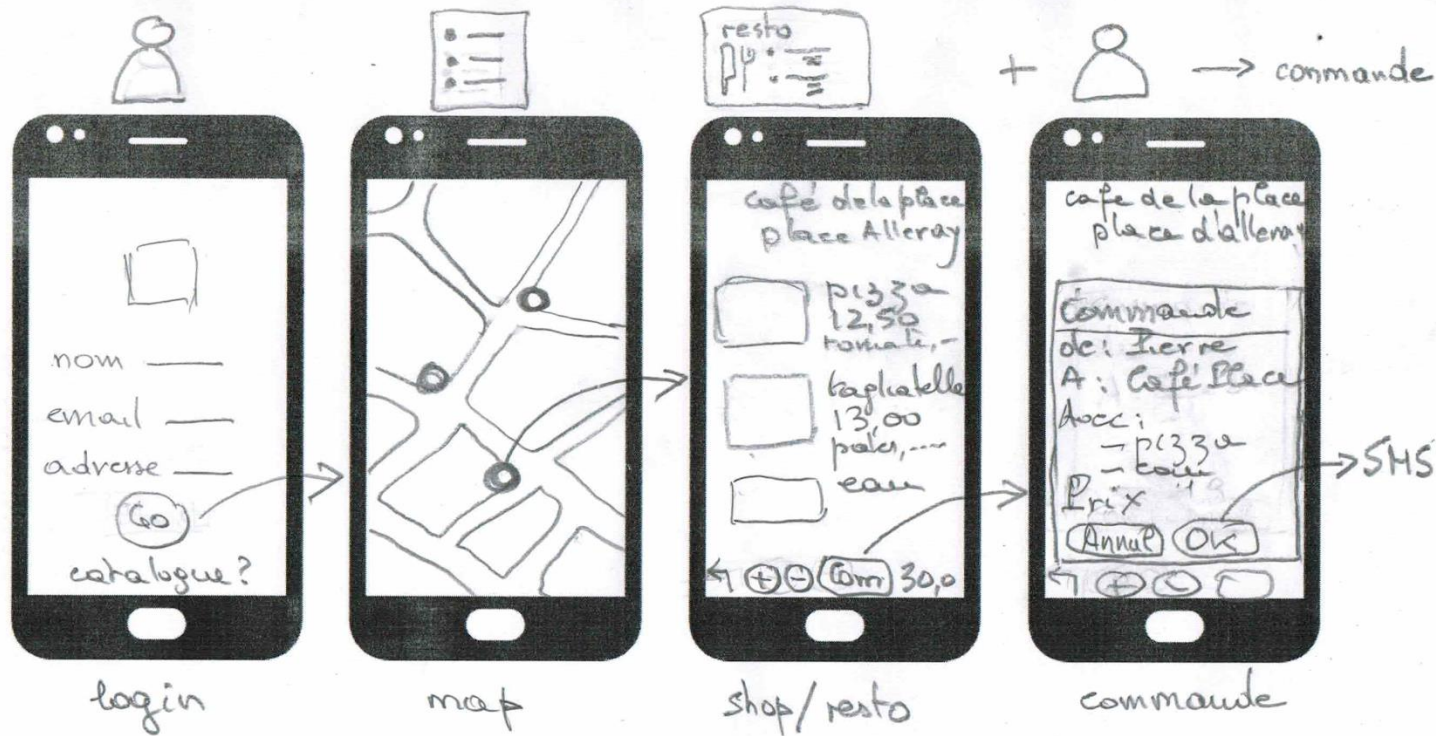 resto
+ → commande
nom
email
adresse
Go
catalogue?
login
map
café de la place
place Alleray
pizza
12,50
tomate,--
tagliatelle
13,00
pates,----
eau
+ - Com 30,0
shop/resto
cafe de la place
place d'alleray
Commande
de: Pierre
A: Café Place
Avec:
- pizza
- eau
Prix
Annul OK
→ SMS
+
commande